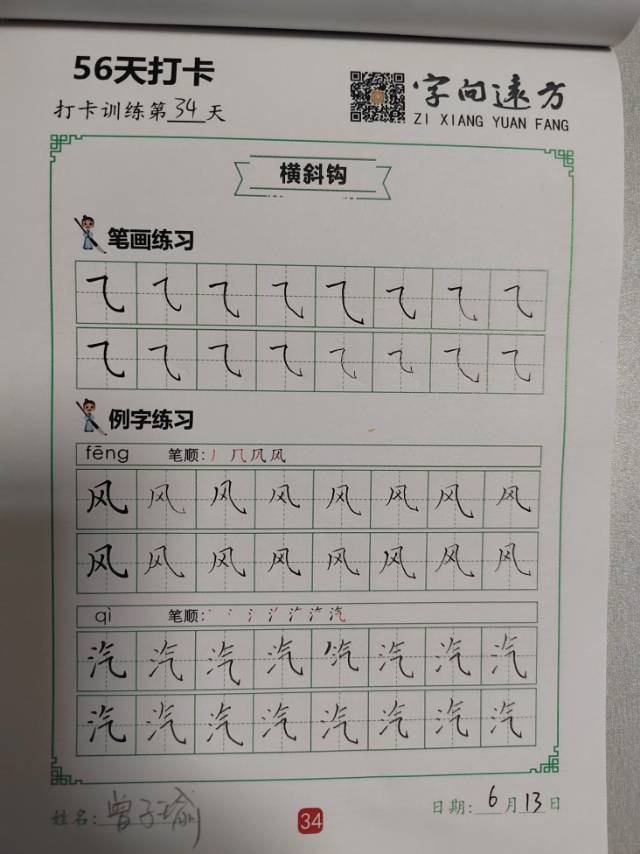 56天打卡
打卡训练第34天
字向远方
ZI XIANG YUAN FANG
横斜钩
笔画练习
⺄⺄⺄⺄⺄⺄⺄⺄
⺄⺄⺄⺄⺄⺄⺄⺄
例字练习
fēng 笔顺:丿几凨风
风风风风风风风风
风风风风风风风风
qì 笔顺:
汽汽汽汽汽汽汽汽
汽汽汽汽汽汽汽汽
姓名:曾子瑜
34
日期:6月13日